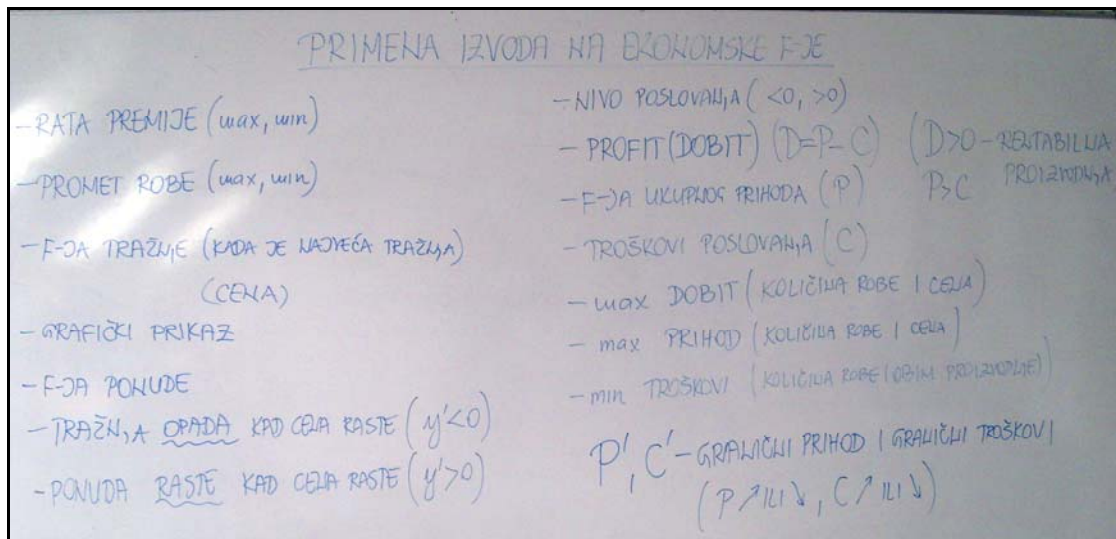 PRIMENA IZVODA NA EKONOMSKE F-JE
- RATA PREMIJE (max, min)
- PROMET ROBE (max, min)
- F-JA TRAŽNJE (KADA JE NAJVEĆA TRAŽNJA)
(CENA)
- GRAFIČKI PRIKAZ
- F-JA PONUDE
- TRAŽNJA OPADA KAD CENA RASTE (y'<0)
- PONUDA RASTE KAD CENA RASTE (y'>0)
- NIVO POSLOVANJA (<0, >0)
- PROFIT (DOBIT) (D=P-C) (D>0 - RENTABILNA
P>C PROIZVODNJA
- F-JA UKUPNOG PRIHODA (P)
- TROŠKOVI POSLOVANJA (C)
- max DOBIT (KOLIČINA ROBE I CENA)
- max PRIHOD (KOLIČINA ROBE I CENA)
- min TROŠKOVI (KOLIČINA ROBE (OBIM PROIZVODNJE)
P', C' - GRANIČNI PRIHOD I GRANIČNI TROŠKOVI
(P ↗ ILI ↘, C ↗ ILI ↘)